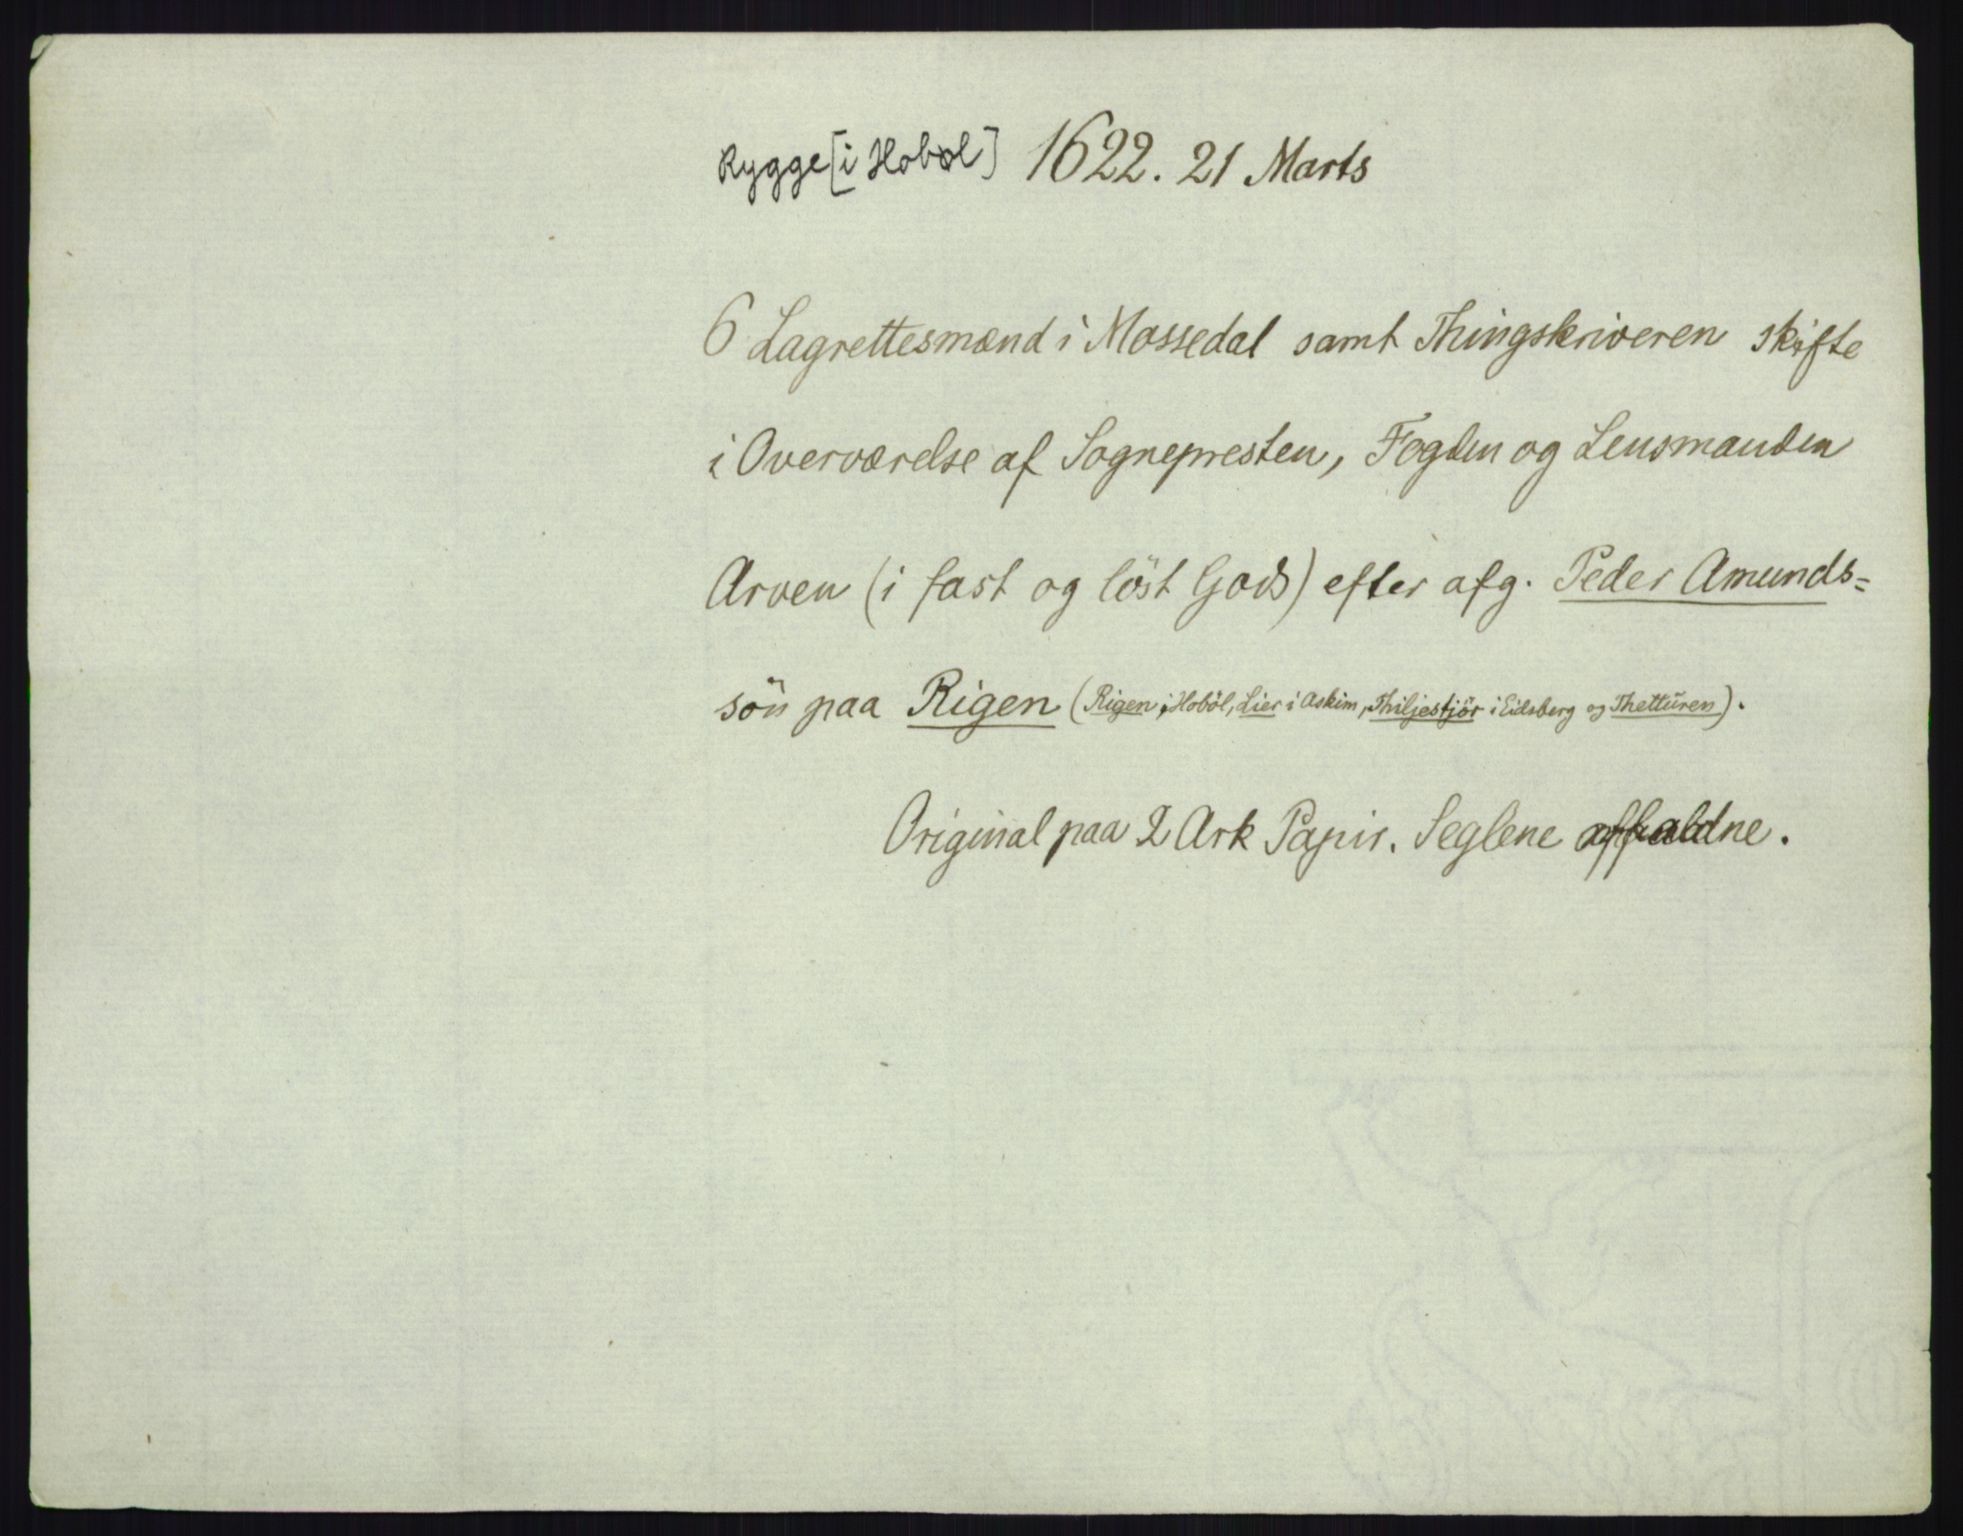 Rygge [i Hobøl] 1622. 21 Marts
6 Lagrettesmænd i Mossedal samt Thingskriveren skifte
i Overværelse af Sognepresten, Fogden og Lensmanden
Arven (i fast og löst Gods) efter afg. Peder Amunds=
sön paa Rigen (Rigen i Hoböl, Lier i Askim, Thiljestjör i Eidsberg og Thetturen).
Original paa 2 Ark Papir. Seglene affaldne.